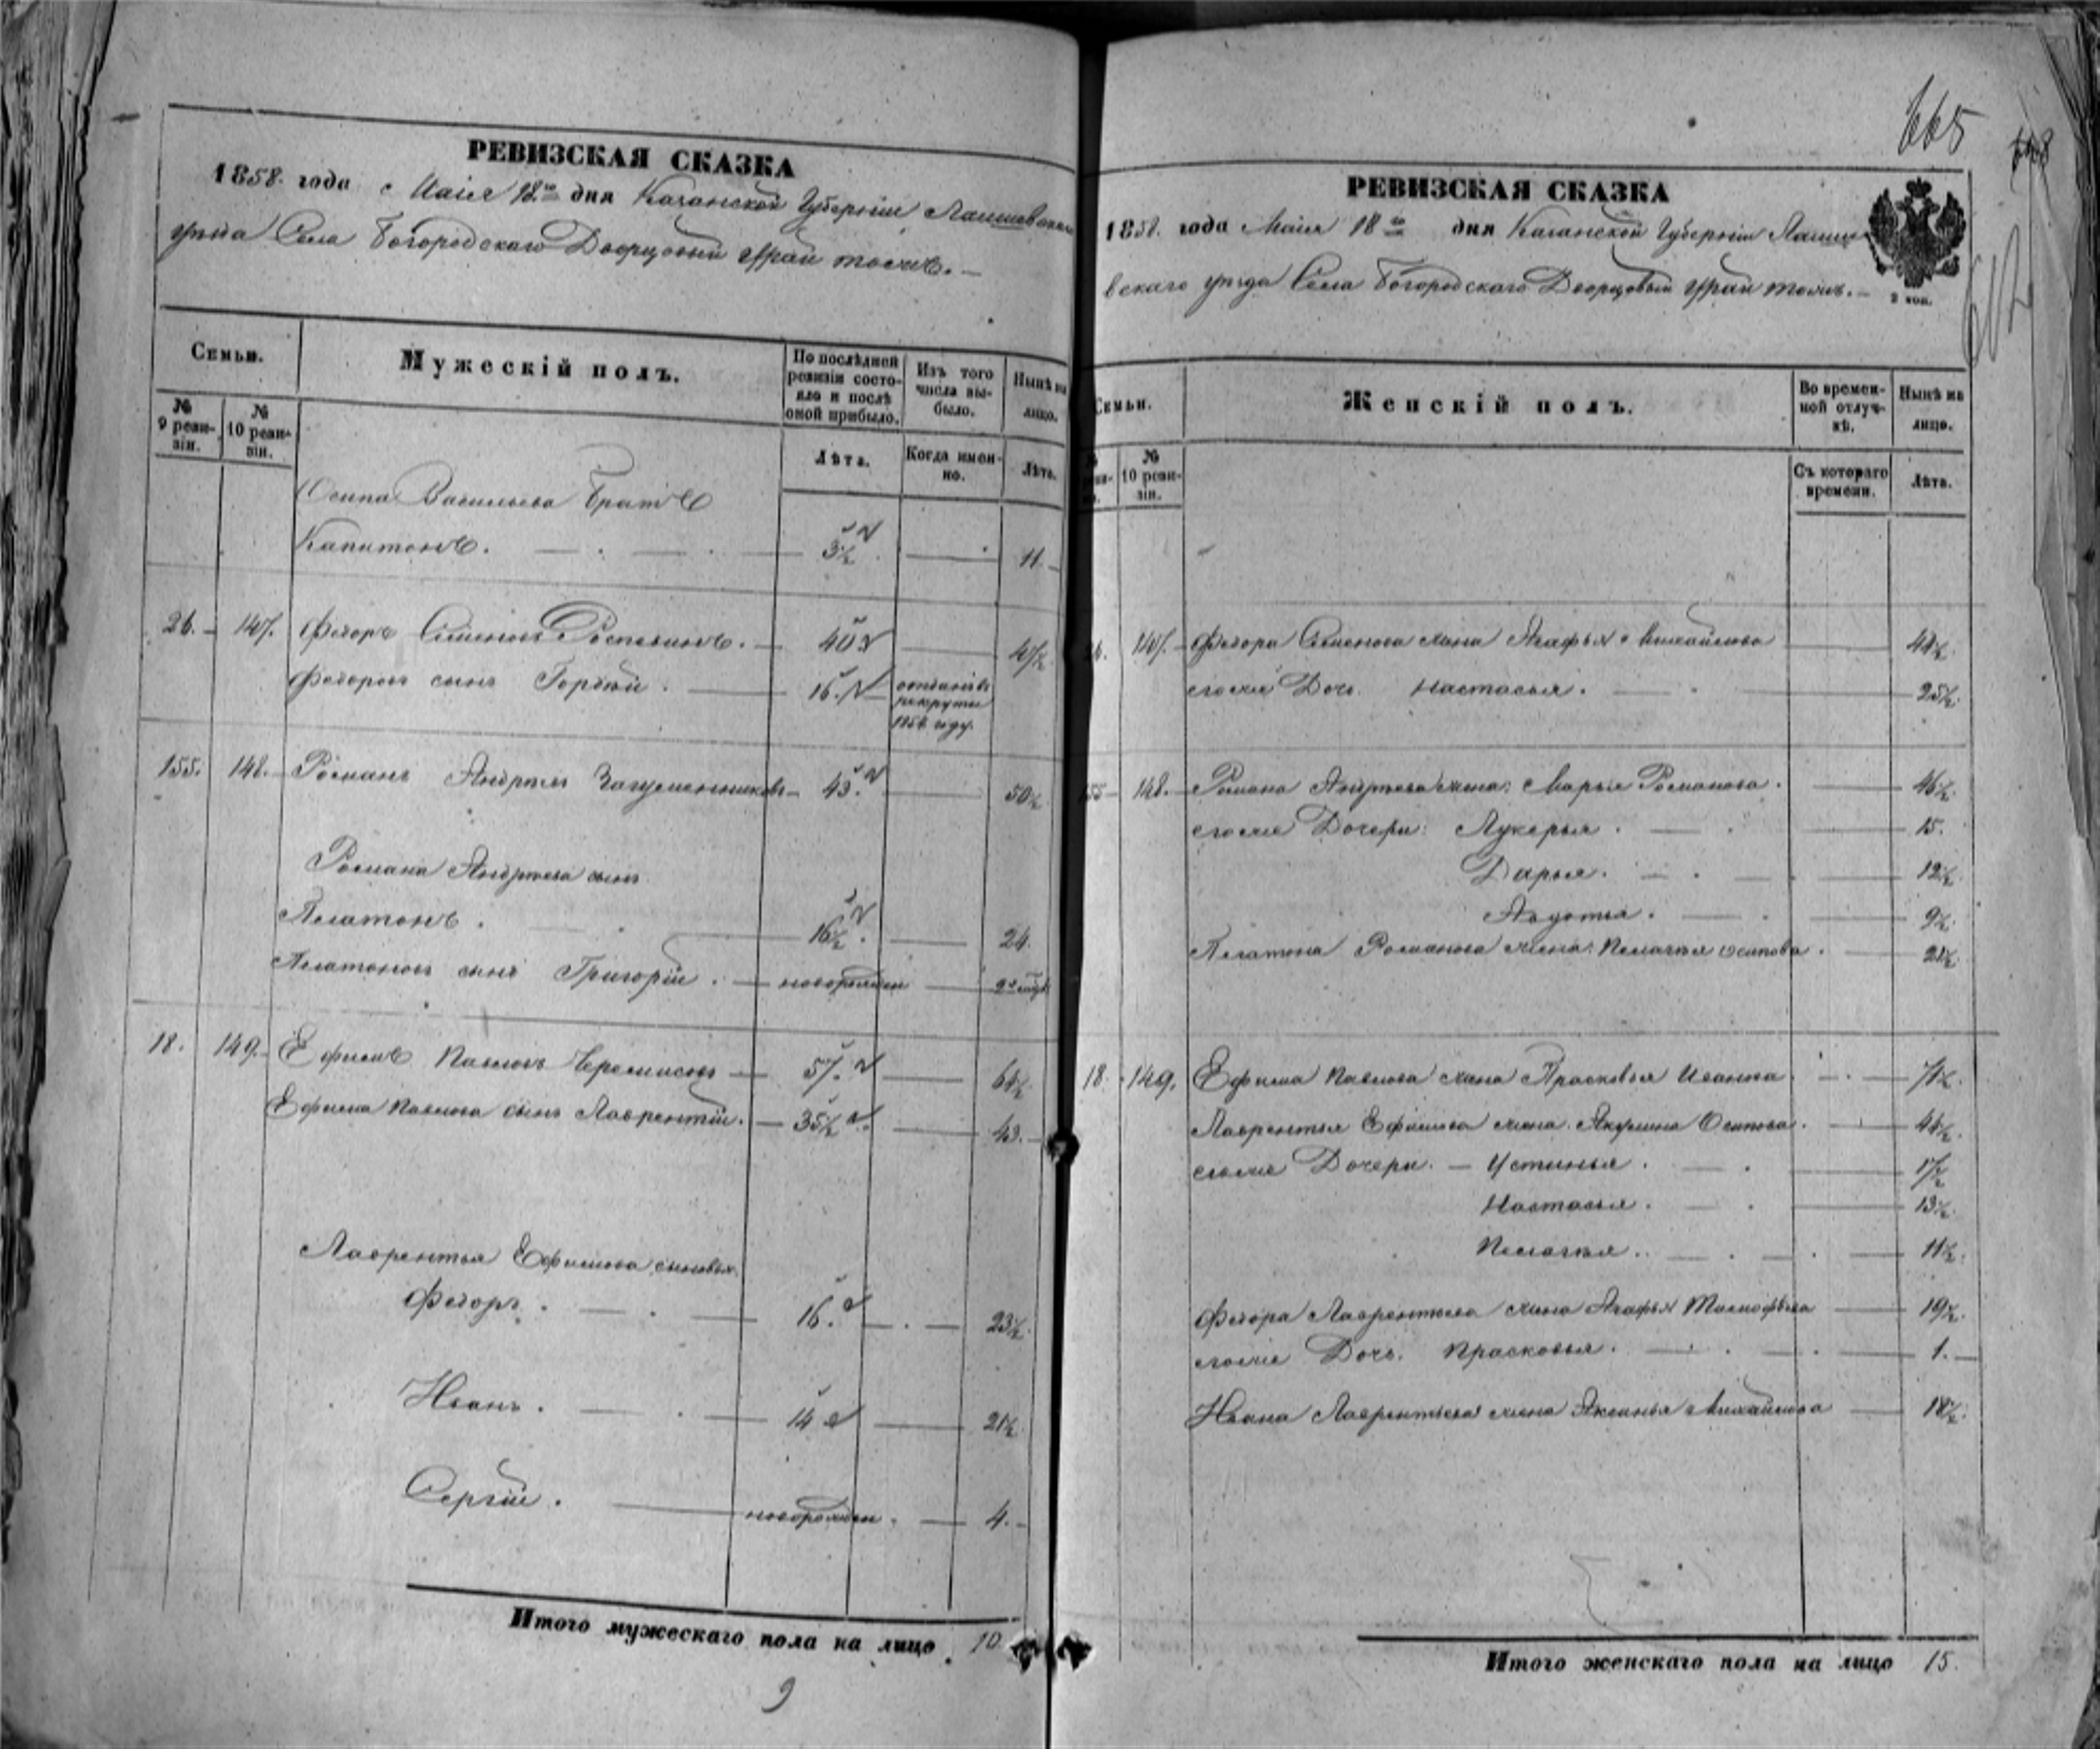 665
РЕВИЗСКАЯ СКАЗКА
1858. года Маія 18го дня Казанской Губерніи Лаишевскаго
уѣзда Села Богородскаго Дворцовый тожъ.
Семьи.
Мужескій полъ.
По послѣдней ревизіи состояло и послѣ оной прибыло.
Изъ того числа выбыло.
Нынѣ на лицо.
№ 9 ревизіи.
№ 10 ревизіи.
Лѣта.
Когда именно.
Лѣта.
Осипа Васильева братъ
Капитонъ. 3½ 11.
26. 147. Федоръ Семеновъ 40 47½
Федоровъ сынъ Гордѣй. 16. отданъ въ рекруты году.
155. 148. Романъ Андреевъ Загуменниковъ 43. 50½
Романа Андреева сынъ
Платонъ. 16½. 24.
Платоновъ сынъ Григорій. новорожден
18. 149. Ефимъ Павловъ Черемисовъ 57. 64½
Ефима Павлова сынъ Лаврентій. 35½ 43.
Лаврентья Ефимова сыновья.
Федоръ. 16. 23½.
Иванъ. 14 21½
Сергій. новорожден. 4.
Итого мужескаго пола на лицо 10.
9
РЕВИЗСКАЯ СКАЗКА
1858. года Маія 18го дня Казанской Губерніи Лаише
вскаго уѣзда Села Богородскаго Дворцовый тожъ.
2 коп.
Семьи.
Женскій полъ.
Во временной отлучкѣ.
Нынѣ на лицо.
10 ревизіи.
Съ котораго времени.
Лѣта.
147. Федора Семенова жена Агафья Михайлова 44½.
егоже Дочь. Настасья. 25½.
155 148. Романа Андреева жена: Марья Романова. 46½.
егоже Дочери: Лукерья. 15.
Дарья. 12½.
Авдотья. 9½.
Платона Романова жена: Пелагѣя Осипова. 21½.
18. 149. Ефима Павлова жена Прасковья Иванова. 71½.
Лаврентья Ефимова жена. Акулина Осипова. 44½.
егоже Дочери. Устинья. 17½
Настасья. 13½.
Пелагѣя. 11½.
Федора Лаврентьева жена Агафья Тимофѣева 19½.
егоже Дочь. Прасковья. 1.
Ивана Лаврентьева жена Аксинья Михайлова 18½.
Итого женскаго пола на лицо 15.